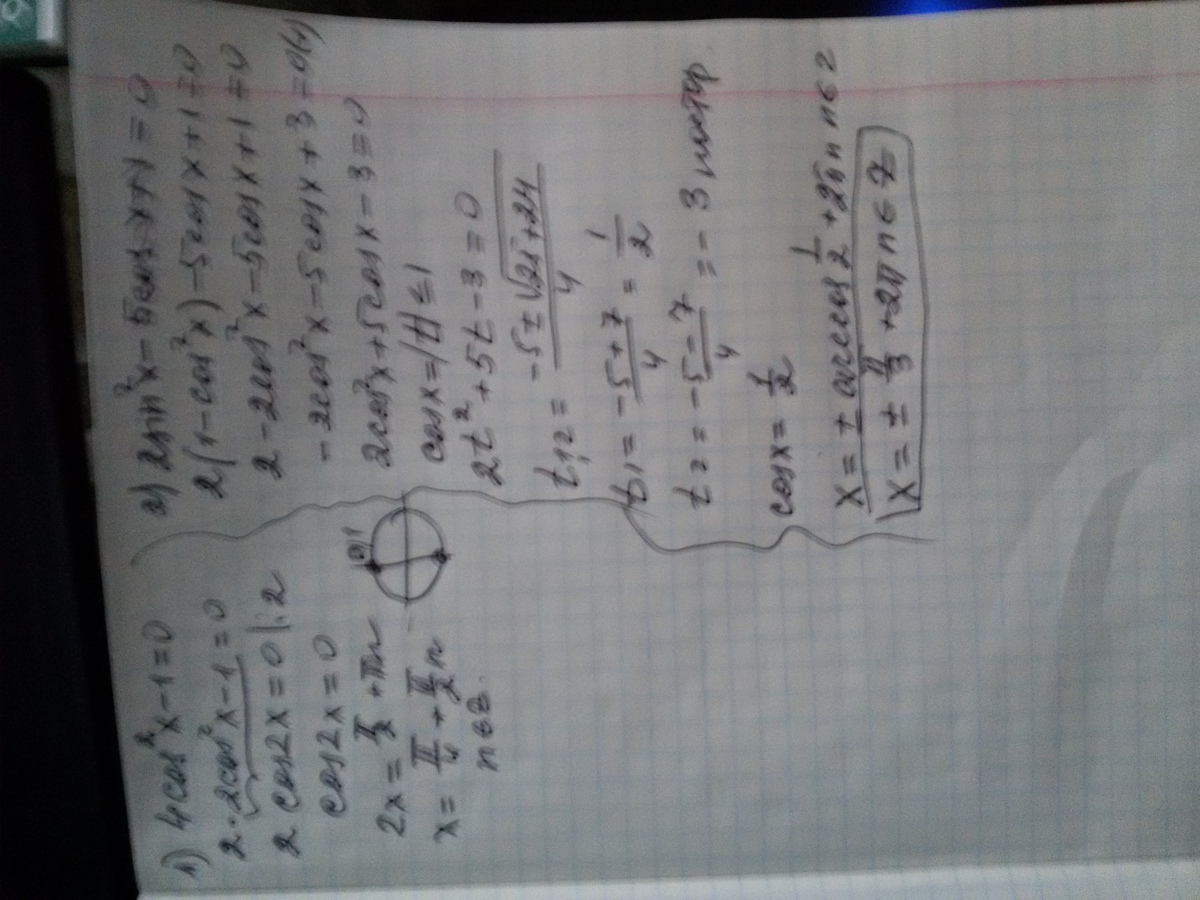 1) 4cos²x-1=0
2·2cos²x-1=0
2 cos2x=0 |:2
cos2x=0
2x=π/2+πn
x=π/4+π/2n
n∈Z.
2) 2sin²x-5cosx+1=0
2(1-cos²x)-5cosx+1=0
2-2cos²x-5cosx+1=0
-2cos²x-5cosx+3=0
2cos²x+5cosx-3=0
cosx=/t/≤1
2t²+5t-3=0
t1,2=(-5±√25+24)/4
t1=(-5+7)/4=1/2
t2=(-5-7)/4=-3
cosx=1/2
x=±arccos1/2+2πn n∈Z
x=±π/3+2πn∈Z